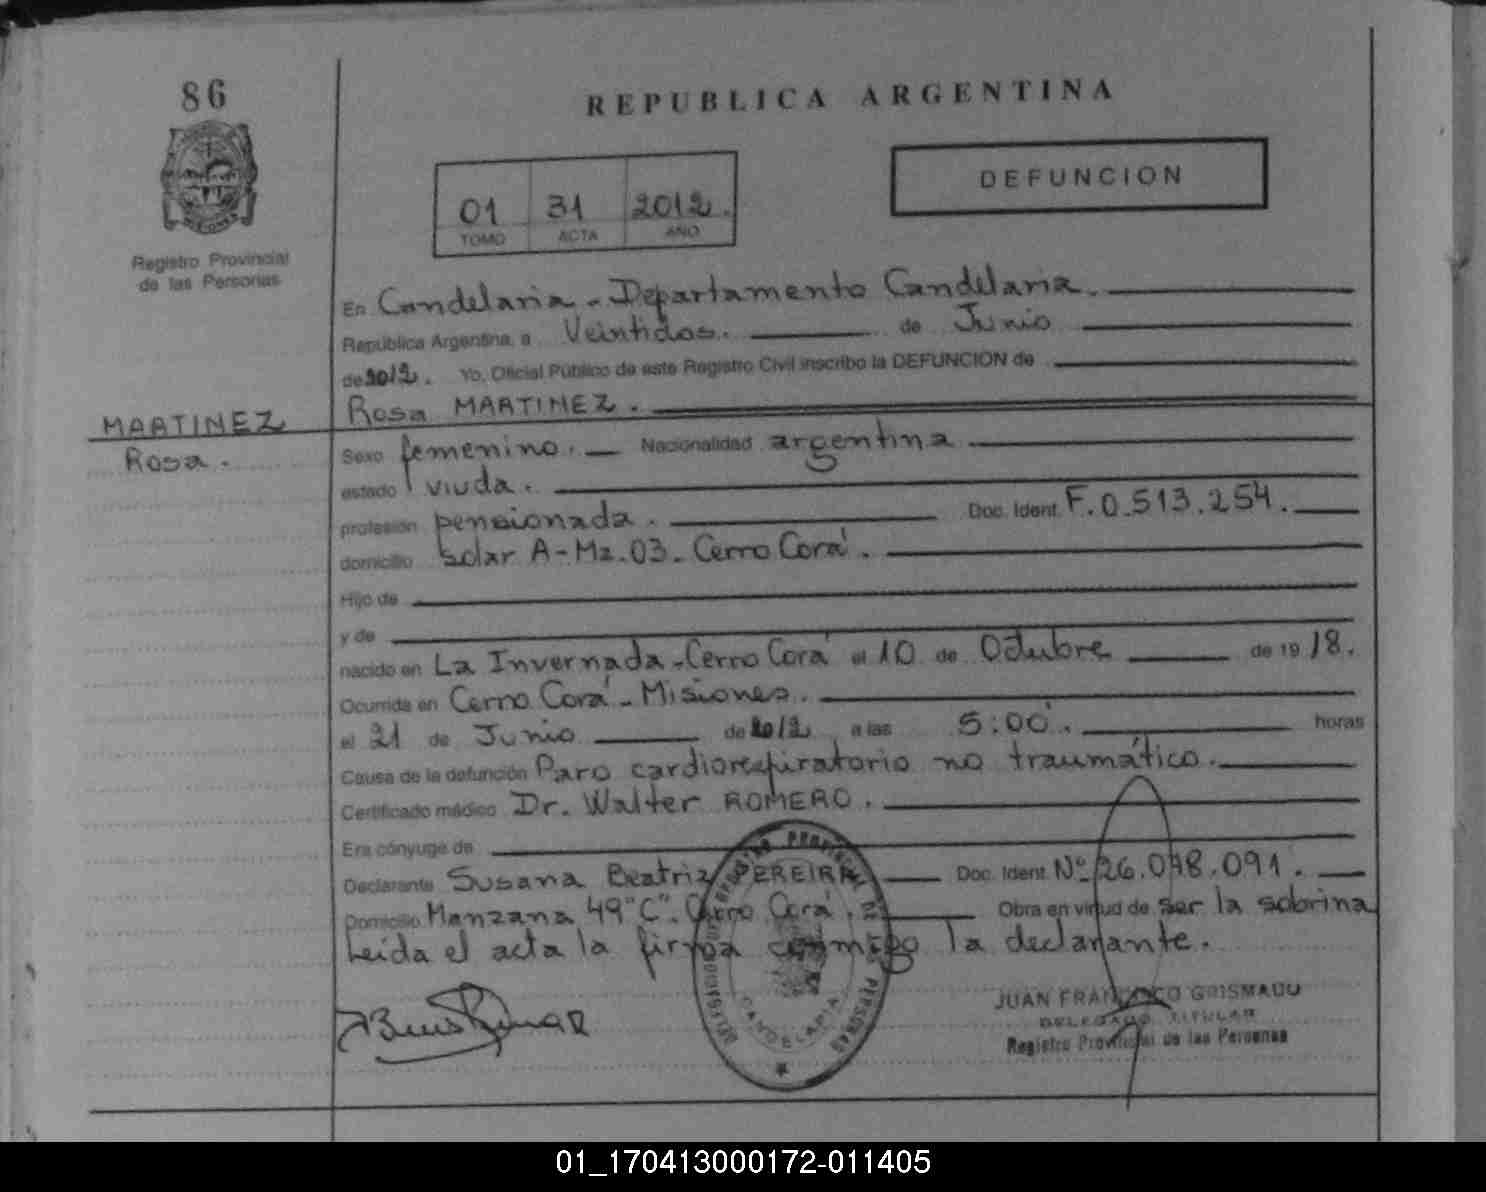 86
REPUBLICA ARGENTINA
DEFUNCION
01 31 2012.
TOMO ACTA AÑO
Registro Provincial
de las Personas
En Candelaria - Departamento Candelaria.
República Argentina, a Veintidos. de Junio
de 2012. Yo, Oficial Público de este Registro Civil inscribo la DEFUNCION de
Rosa MARTINEZ.
MARTINEZ
Rosa.
Sexo femenino. Nacionalidad argentina
estado viuda.
profesión pensionada. Doc. Ident. F.0.513.254.
domicilio solar A-Mz.03- Cerro Corá.
Hijo de
y de
nacido en La Invernada-Cerro Corá el 10 de Octubre de 1918.
Ocurrida en Cerro Corá - Misiones.
el 21 de Junio de 2012 a las 5:00. horas
Causa de la defunción Paro cardiorespiratorio no traumático.
Certificado médico Dr. Walter ROMERO.
Era cónyuge de
Declarante Susana Beatriz PEREIRA Doc. Ident. Nº 26.048.091.
Domicilio Manzana 49"C". Cerro Corá. Obra en virtud de ser la sobrina
Leída el acta la firma conmigo la declarante.
JUAN FRANCISCO GRISMADO
DELEGADO TITULAR
Registro Provincial de las Personas
CANDELARIA
01_170413000172-011405